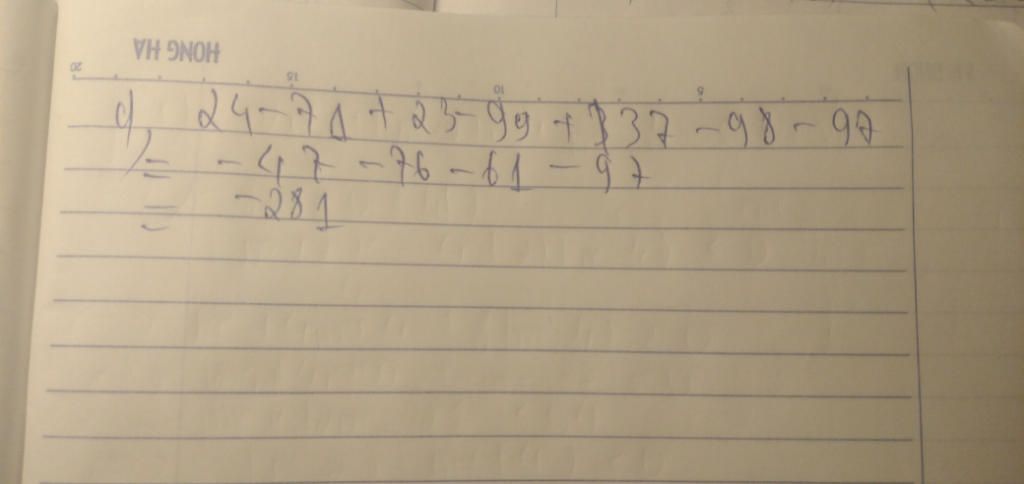 HONG HA
20 15 10 5
d, 24 - 71 + 23 - 99 + 37 - 98 - 97
= - 47 - 76 - 61 - 97
= - 281